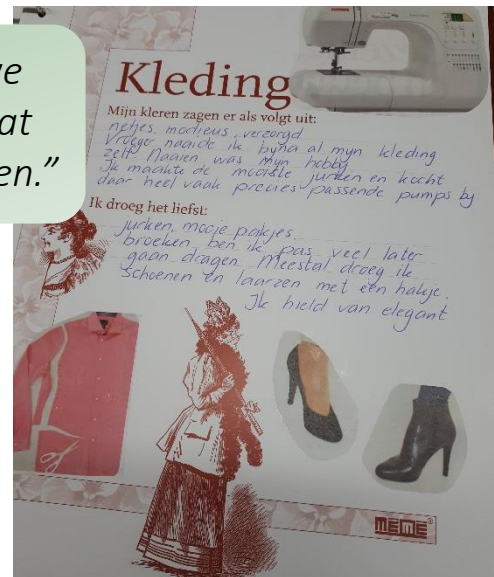 ve
at
en.”
Kleding
Mijn kleren zagen er als volgt uit:
netjes, modieus, verzorgd
Vroeger naaide ik bijna al mijn kleding
zelf. Naaien was mijn hobby
Ik maakte de mooiste jurken en kocht
daar heel vaak precies passende pumps bij
Ik droeg het liefst:
jurken, mooie pakjes.
broeken, ben ik pas veel later
gaan dragen. Meestal droeg ik
schoenen en laarzen met een hakje.
Ik hield van elegant
MEME